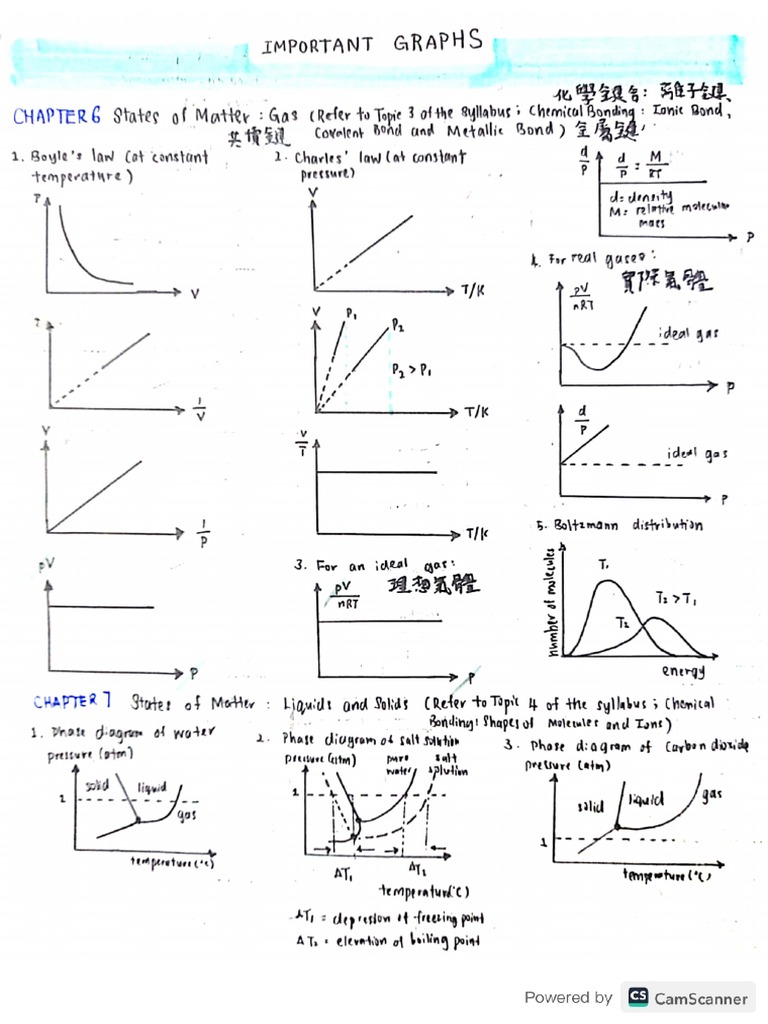 IMPORTANT GRAPHS
化學鍵合: 離子鍵
CHAPTER 6 States of Matter : Gas (Refer to Topic 3 of the syllabus ; Chemical Bonding : Ionic Bond,
共價鍵 Covalent Bond and Metallic Bond) 金屬鍵
1. Boyle's law (at constant
temperature)
P
V
P
1/V
V
1/P
PV
P
2. Charles' law (at constant
pressure)
V
T/K
V
P1
P2
P2 > P1
T/K
V/T
T/K
3. For an ideal gas:
理想氣體
PV/nRT
P
d/P
d/P = M/RT
d= density
M= relative molecular
mass
P
4. For real gases:
實際氣體
PV/nRT
ideal gas
P
d/P
ideal gas
P
5. Boltzmann distribution
number of molecules
T1
T2
T2 > T1
energy
CHAPTER 7 States of Matter : Liquids and Solids (Refer to Topic 4 of the syllabus ; Chemical
Bonding: Shapes of Molecules and Ions)
1. Phase diagram of water
pressure (atm)
solid
liquid
gas
1
temperature (°C)
2. Phase diagram of salt solution
pressure (atm)
pure
water
salt
solution
1
ΔT1
ΔT2
temperature(°C)
ΔT1 = depression of freezing point
ΔT2 = elevation of boiling point
3. Phase diagram of Carbon dioxide
pressure (atm)
solid
liquid
gas
1
temperature (°C)
Powered by CS CamScanner